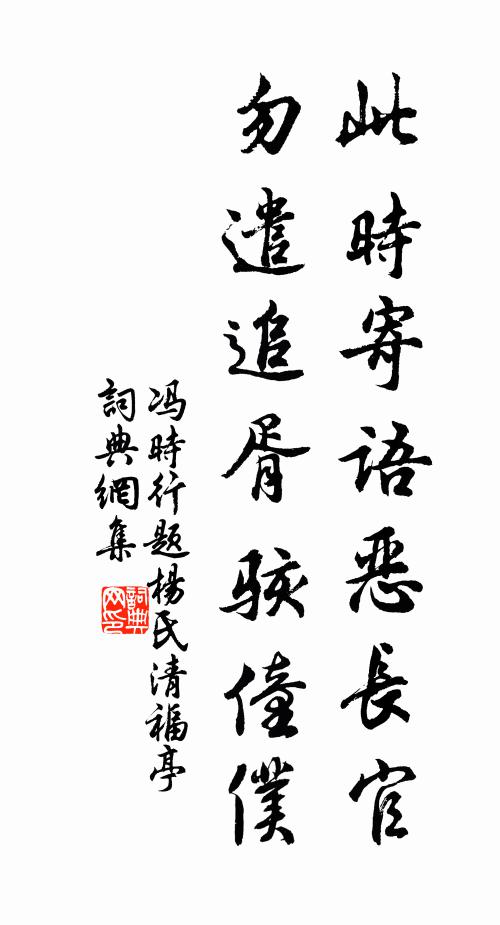 此時寄語惡長官
勿遣追胥駭僮僕
冯時行题楊氏清福亭
詞典網集
詞典
网印